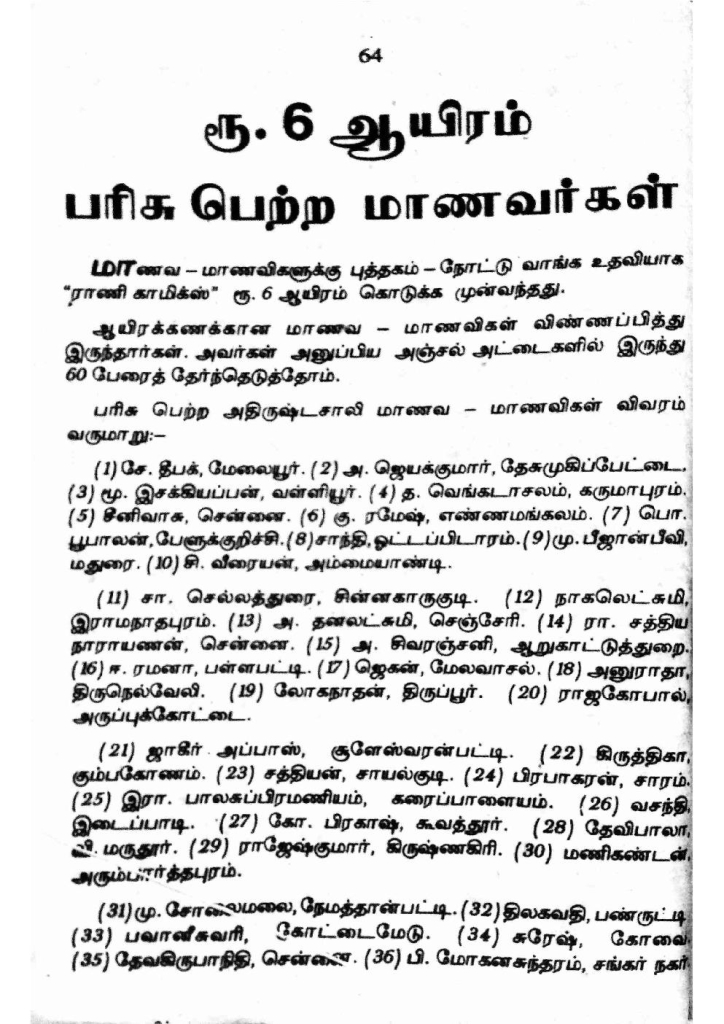 64
ரூ. 6 ஆயிரம்
பரிசு பெற்ற மாணவர்கள்
மாணவ – மாணவிகளுக்கு புத்தகம் – நோட்டு வாங்க உதவியாக
"ராணி காமிக்ஸ்" ரூ. 6 ஆயிரம் கொடுக்க முன்வந்தது.
ஆயிரக்கணக்கான மாணவ – மாணவிகள் விண்ணப்பித்து
இருந்தார்கள். அவர்கள் அனுப்பிய அஞ்சல் அட்டைகளில் இருந்து
60 பேரைத் தேர்ந்தெடுத்தோம்.
பரிசு பெற்ற அதிருஷ்டசாலி மாணவ – மாணவிகள் விவரம்
வருமாறு:–
(1) சே. தீபக், மேலையூர். (2) அ. ஜெயக்குமார், தேசுமுகிப்பேட்டை.
(3) மூ. இசக்கியப்பன், வள்ளியூர். (4) த. வெங்கடாசலம், கருமாபுரம்.
(5) சீனிவாசு, சென்னை. (6) கு. ரமேஷ், எண்ணமங்கலம். (7) பொ.
பூபாலன், பேளுக்குறிச்சி. (8) சாந்தி, ஓட்டப்பிடாரம். (9) மு. பீஜான்பீவி,
மதுரை. (10) சி. வீரையன், அம்மையாண்டி.
(11) சா. செல்லத்துரை, சின்னகாருகுடி. (12) நாகலெட்சுமி,
இராமநாதபுரம். (13) அ. தனலட்சுமி, செஞ்சேரி. (14) ரா. சத்திய
நாராயணன், சென்னை. (15) அ. சிவரஞ்சனி, ஆறுகாட்டுத்துறை.
(16) ஈ. ரமனா, பள்ளபட்டி. (17) ஜெகன், மேலவாசல். (18) அனுராதா,
திருநெல்வேலி. (19) லோகநாதன், திருப்பூர். (20) ராஜகோபால்,
அருப்புக்கோட்டை.
(21) ஜாகீர் அப்பாஸ், சூளேஸ்வரன்பட்டி. (22) கிருத்திகா,
கும்பகோணம். (23) சத்தியன், சாயல்குடி. (24) பிரபாகரன், சாரம்.
(25) இரா. பாலசுப்பிரமணியம், கரைப்பாளையம். (26) வசந்தி,
இடைப்பாடி. (27) கோ. பிரகாஷ், கூவத்தூர். (28) தேவிபாலா,
மருதூர். (29) ராஜேஷ்குமார், கிருஷ்ணகிரி. (30) மணிகண்டன்,
அரும்பார்த்தபுரம்.
(31) மு. சோலைமலை, நேமத்தான்பட்டி. (32) திலகவதி, பண்ருட்டி
(33) பவானீசுவரி, கோட்டைமேடு. (34) சுரேஷ், கோவை
(35) தேவகிருபாநிதி, சென்னை. (36) பி. மோகனசுந்தரம், சங்கர் நகர்